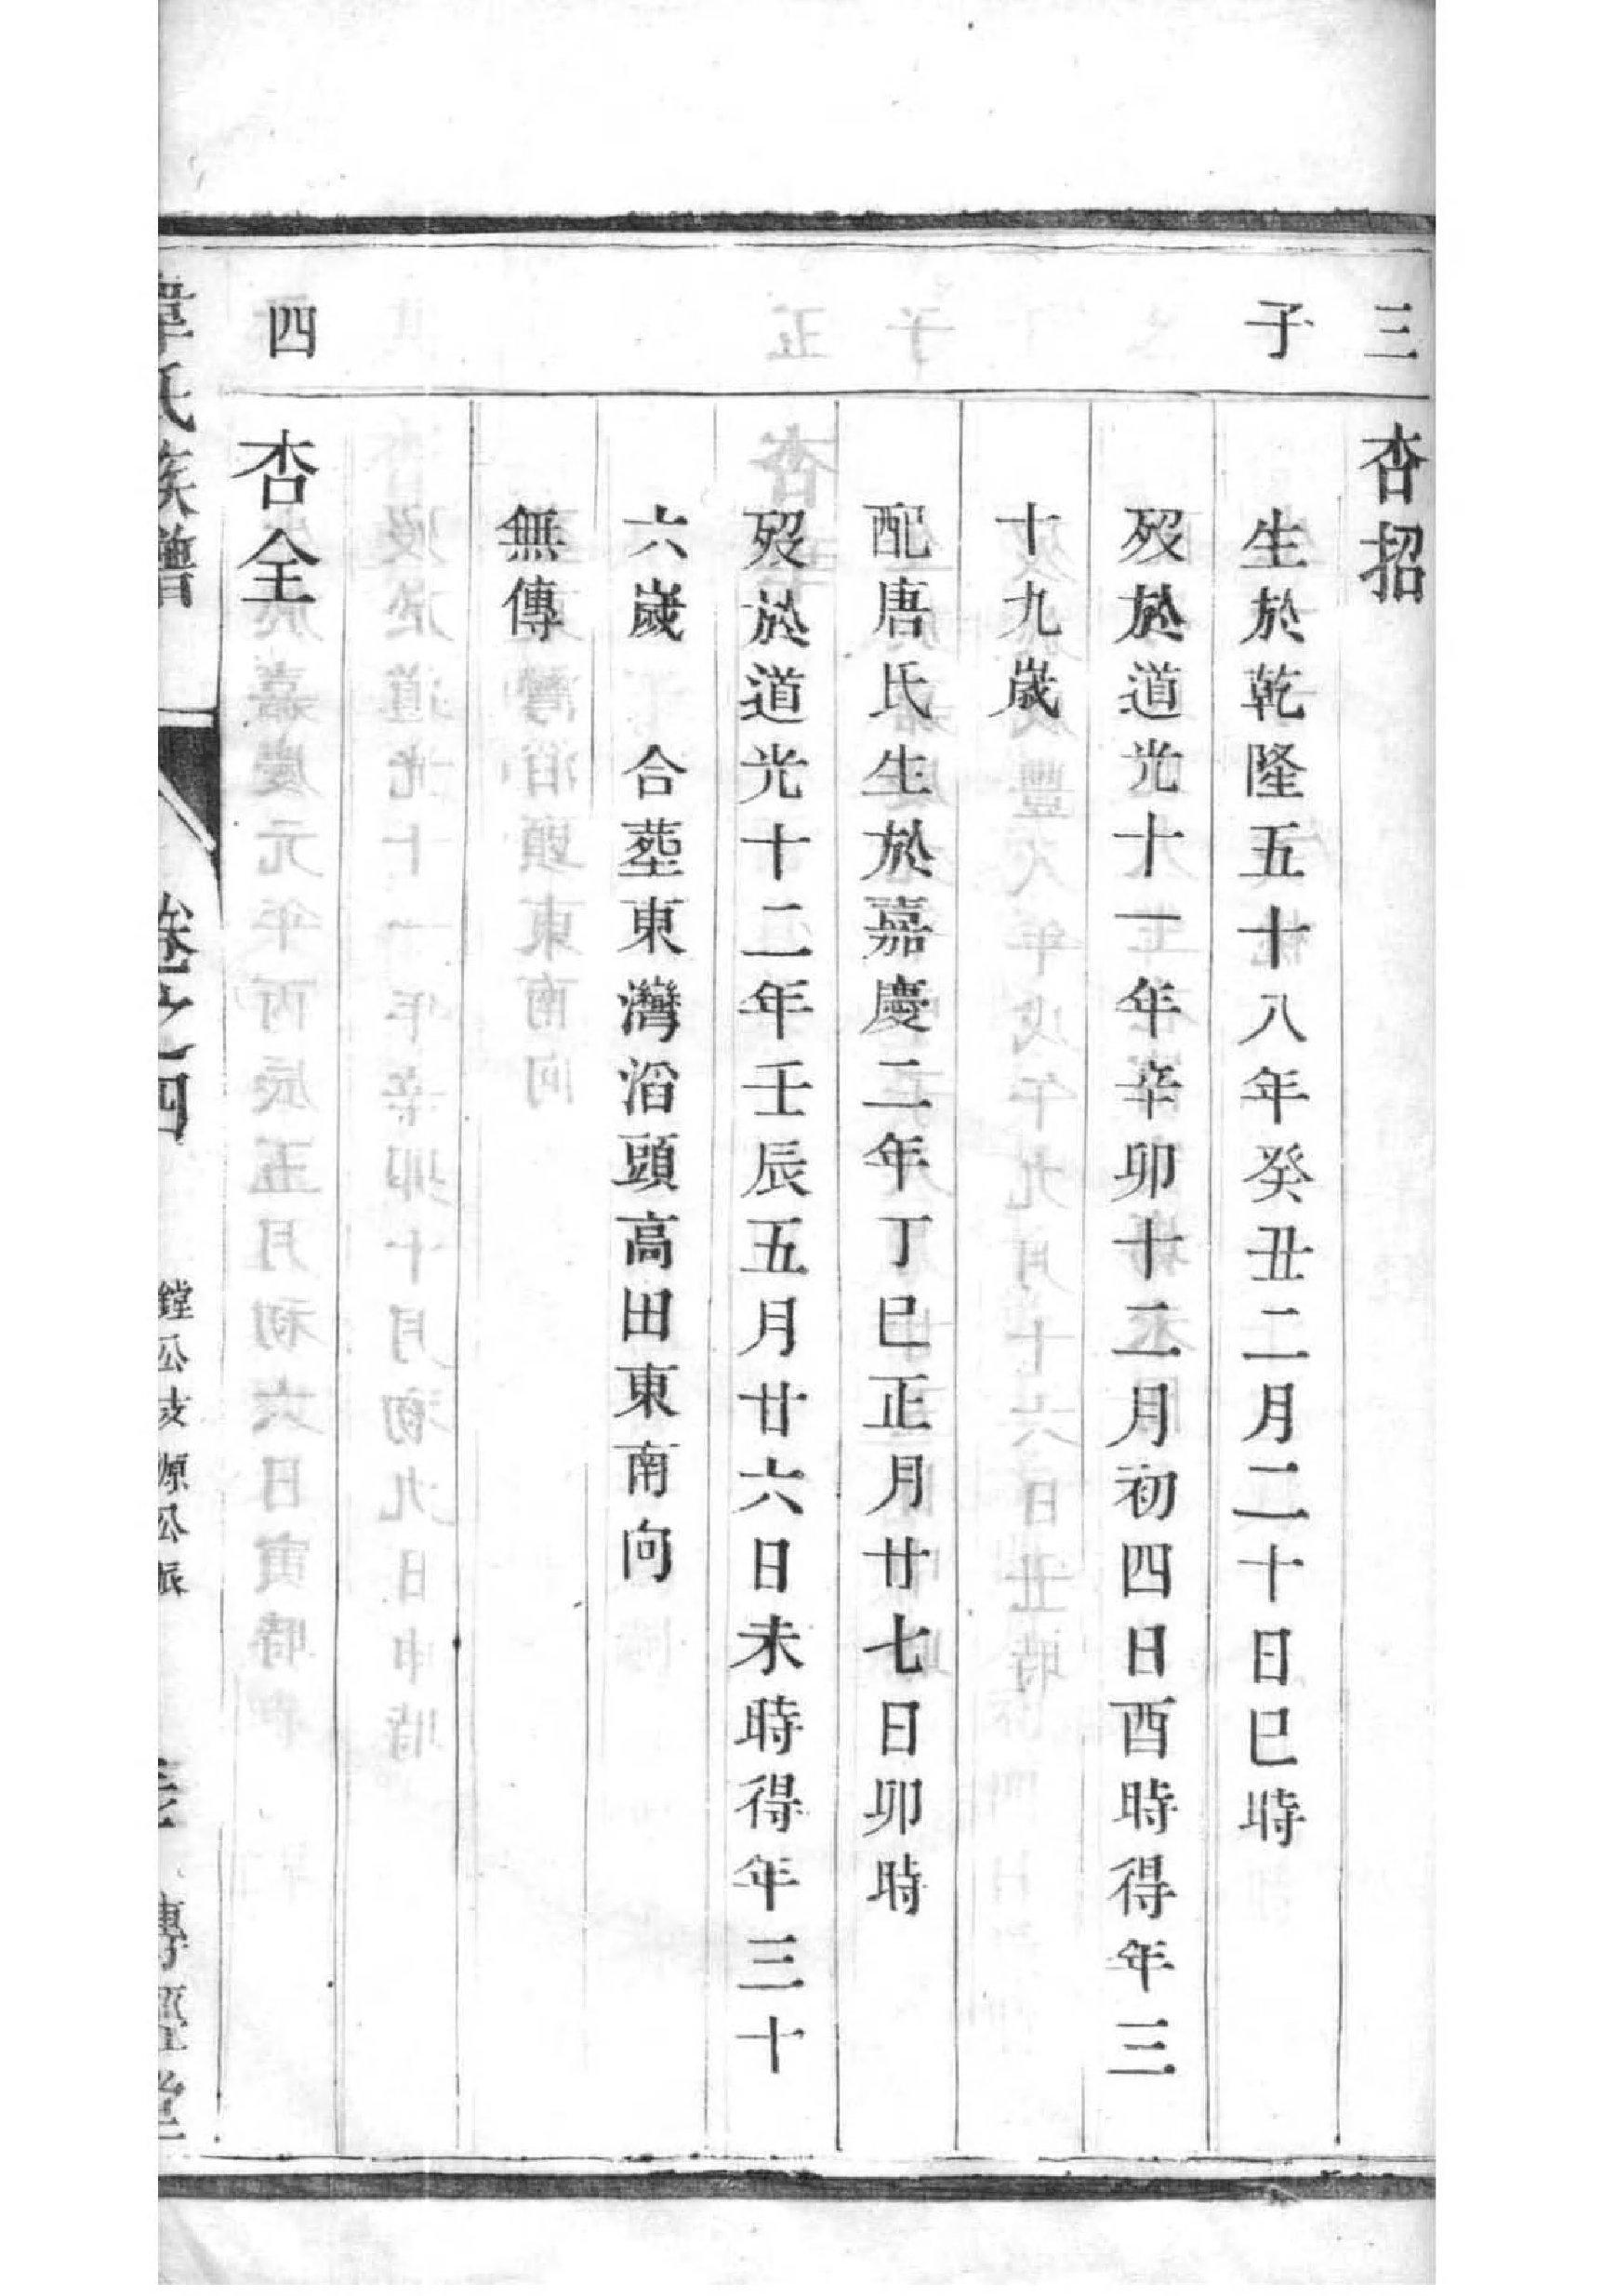 三
子
杏招
生於乾隆五十八年癸丑二月二十日巳時
歿於道光十一年辛卯十二月初四日酉時得年三
十九歲
配唐氏生於嘉慶二年丁巳正月廿七日卯時
歿於道光十二年壬辰五月廿六日未時得年三十
六歲　合塟東灣滔頭高田東南向
無傳
四
杏全
韋氏族譜
卷之四
鏜公支源公派
傳經堂